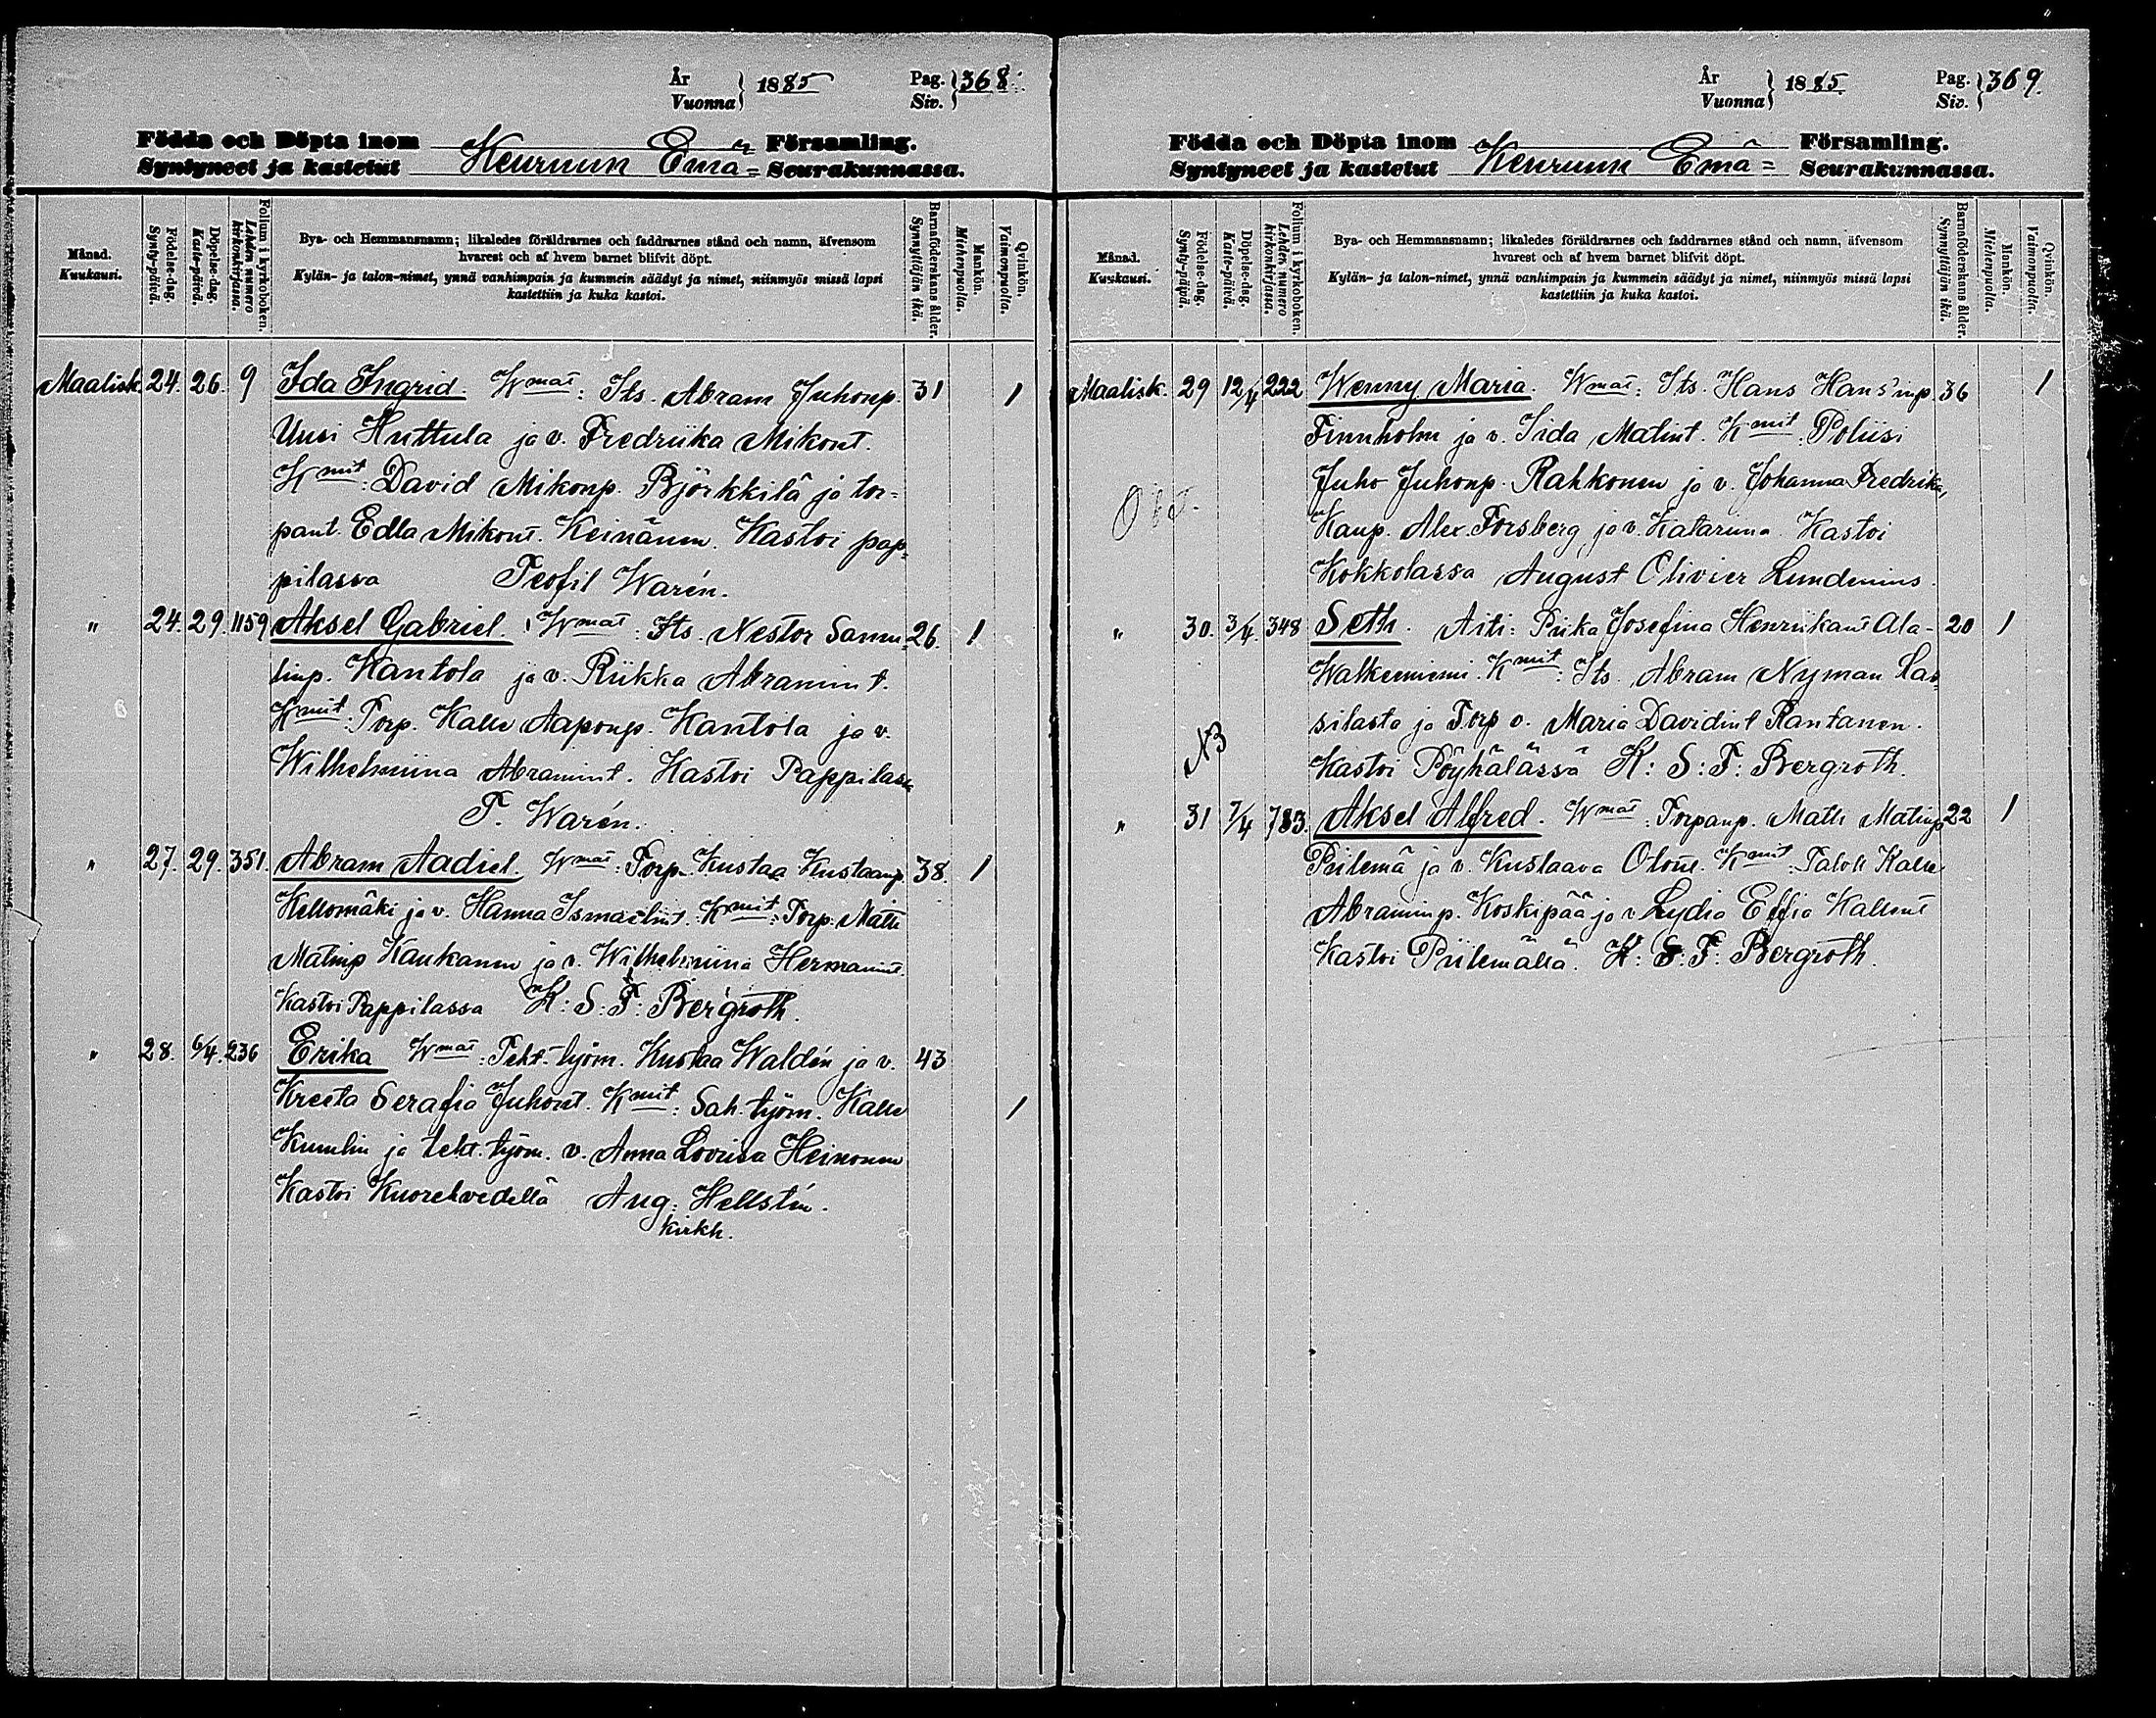 År
Vuonna } 1885 Pag.
Siv. } 368.
Födda och Döpta inom Församling.
Syntyneet ja kastetut Keuruun Emä= Seurakunnassa.
Månad.
Kuukausi.
Födelse-dag.
Synty-päivä.
Döpelse-dag.
Kaste-päivä.
Folium i kyrkoboken.
Lehden numero
kirkonkirjassa.
Bya- och Hemmansnamn; likaledes föräldrarnes och faddrarnes stånd och namn, äfvensom
hvarest och af hvem barnet blifvit döpt.
Kylän- ja talon-nimet, ynnä vanhimpain ja kummein säädyt ja nimet, niinmyös missä lapsi
kastettiin ja kuka kastoi.
Barnaföderskans ålder.
Synnyttäjän ikä.
Mankön.
Miehenpuolta.
Qvinkön.
Vaimonpuolta.
Maalisk. 24. 26. 9 Ida Ingrid. Wmat: Its. Abram Juhonp. 31 1
Uusi Huttula ja v. Fredriika Mikont.
Kmit: David Mikonp. Björkkilä ja tor=
pant. Edla Mikont. Keinänen. Kastoi pap=
pilassa Teofil Warén.
" 24. 29. 1159 Aksel Gabriel. Wmat: Its. Nestor Samu= 26. 1
linp. Kantola ja v. Riikka Abramint.
Kmit: Torp. Kalle Aaponp. Kantola ja v.
Wilhelmiina Abramint. Kastoi Pappilassa
T. Warén.
" 27. 29. 351. Abram Aadiel. Wmat: Torp. Kustaa Kustaanp. 38. 1
Kellomäki ja v. Hanna Ismaelint. Kmit: Torp. Matti
Matinp Kaukanen ja v. Wilhelmiina Hermannint.
Kastoi Pappilassa K: S: F: Bergroth.
" 28. 6/4. 236 Erika Wmat: Teht. työm. Kustaa Waldén ja v. 43
Kreeta Serafia Juhont. Kmit: Sah. työm. Kalle 1
Kumlin ja teht. työm. v. Anna Lovisa Heinonen
Kastoi Kuorehvedellä Aug. Hellstén.
kirkh.
År
Vuonna } 1885. Pag.
Siv. } 369.
Födda och Döpta inom Församling.
Syntyneet ja kastetut Keuruun Emä= Seurakunnassa.
Månad.
Kuukausi.
Födelse-dag.
Synty-päivä.
Döpelse-dag.
Kaste-päivä.
Folium i kyrkoboken.
Lehden numero
kirkonkirjassa.
Bya- och Hemmansnamn; likaledes föräldrarnes och faddrarnes stånd och namn, äfvensom
hvarest och af hvem barnet blifvit döpt.
Kylän- ja talon-nimet, ynnä vanhimpain ja kummein säädyt ja nimet, niinmyös missä lapsi
kastettiin ja kuka kastoi.
Barnaföderskans ålder.
Synnyttäjän ikä.
Mankön.
Miehenpuolta.
Qvinkön.
Vaimonpuolta.
Maalisk. 29 12/4 222 Wenny Maria. Wmat: Its. Hans Hans'inp. 36 1
Finnholm ja v. Iida Matint. Kmit. Poliisi
Juho Juhonp. Rahkonen ja v. Johanna Fredrika,
Kaup. Alex. Forsberg, ja v. Katariina. Kastoi
Kokkolassa August Olivier Lundenius.
" 30. 3/4. 348 Seth. Äiti: Piika Josefina Henriikant Ala- 20 1
Walkeeniemi. Kmit: Its. Abram Nyman Las=
silasta ja Torp v. Maria Davidint Rantanen.
NB Kastoi Pöyhälässä K: S: F: Bergroth.
" 31 7/4 783. Aksel Alfred. Wmat: Torpanp. Matti Matinp 22 1
Piilemä ja v. Kustaava Otont. Kmit: Talolt Kalle
Abraminp. Koskipää ja v Lydia Effia Kallent
Kastoi Piilemällä. K: S: F: Bergroth.